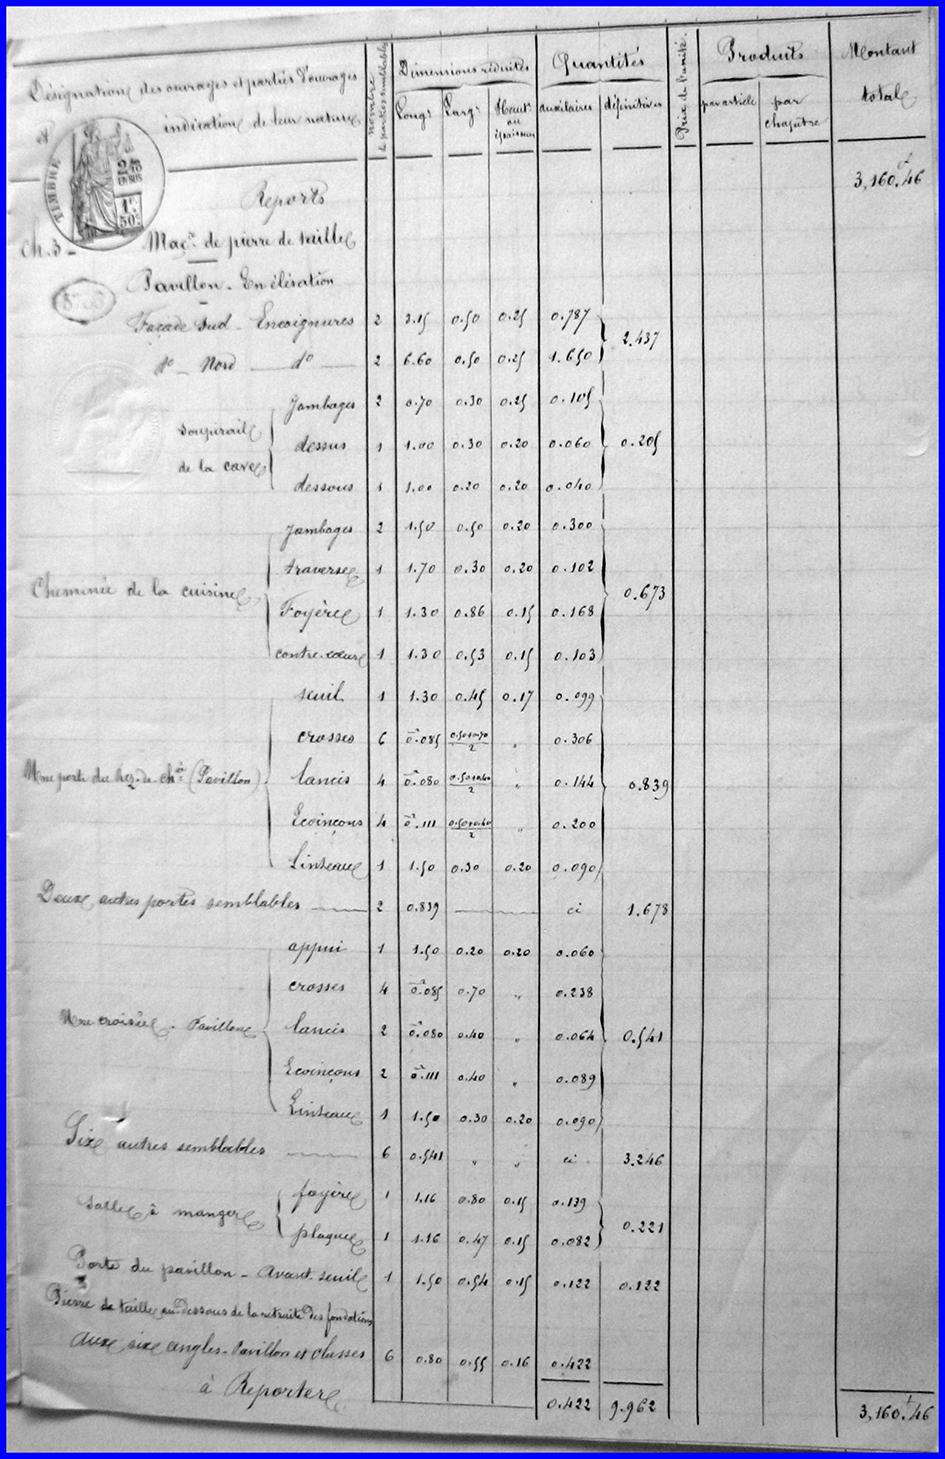 Désignation des ouvrages et parties d'ouvrages
et indication de leur nature
Nombre de parties semblables
Dimensions réduites
Longr Largr Hautr ou épaisseur
Quantités
auxiliaires définitives
Prix de l'unité
Produits
par article par chapitre
Montant total
TIMBRE
2/10 EN SUS
1f 50c
Reports 3,160.f46
Ch. 3 - Maçie de pierre de taille
Pavillon - En élévation
Façade Sud - Encoignures 2 3.15 0.50 0.25 0.787
do - Nord - do 2 6.60 0.50 0.25 1.650
2.437
soupirail de la cave
Jambages 2 0.70 0.30 0.25 0.105
dessus 1 1.00 0.30 0.20 0.060
dessous 1 1.00 0.20 0.20 0.040
0.205
Cheminée de la cuisine
Jambages 2 1.50 0.50 0.20 0.300
traverse 1 1.70 0.30 0.20 0.102
Foyère 1 1.30 0.86 0.15 0.168
contre-coeur 1 1.30 0.53 0.15 0.103
0.673
Une porte du Rez-de-chée (Pavillon)
seuil 1 1.30 0.45 0.17 0.099
crosses 6 0.085 0.50+0.70/2 " 0.306
lancis 4 0.080 0.50+0.40/2 " 0.144
Ecoinçons 4 0.111 0.50+0.40/2 " 0.200
Linteau 1 1.50 0.30 0.20 0.090
0.839
Deux autres portes semblables 2 0.839 ci 1.678
Une croisée - Pavillon
appui 1 1.50 0.20 0.20 0.060
crosses 4 0.085 0.70 " 0.238
lancis 2 0.080 0.40 " 0.064
Ecoinçons 2 0.111 0.40 " 0.089
Linteau 1 1.50 0.30 0.20 0.090
0.541
Six autres semblables 6 0.541 " " ci 3.246
Salle à manger
foyère 1 1.16 0.80 0.15 0.139
plaque 1 1.16 0.47 0.15 0.082
0.221
Porte du pavillon - Avant-seuil 1 1.50 0.54 0.15 0.122 0.122
Pierre de taille au-dessous de la retraite des fondations
aux six angles - Pavillon et classes 6 0.80 0.55 0.16 0.422
à Reporter 0.422 9.962 3,160.f46